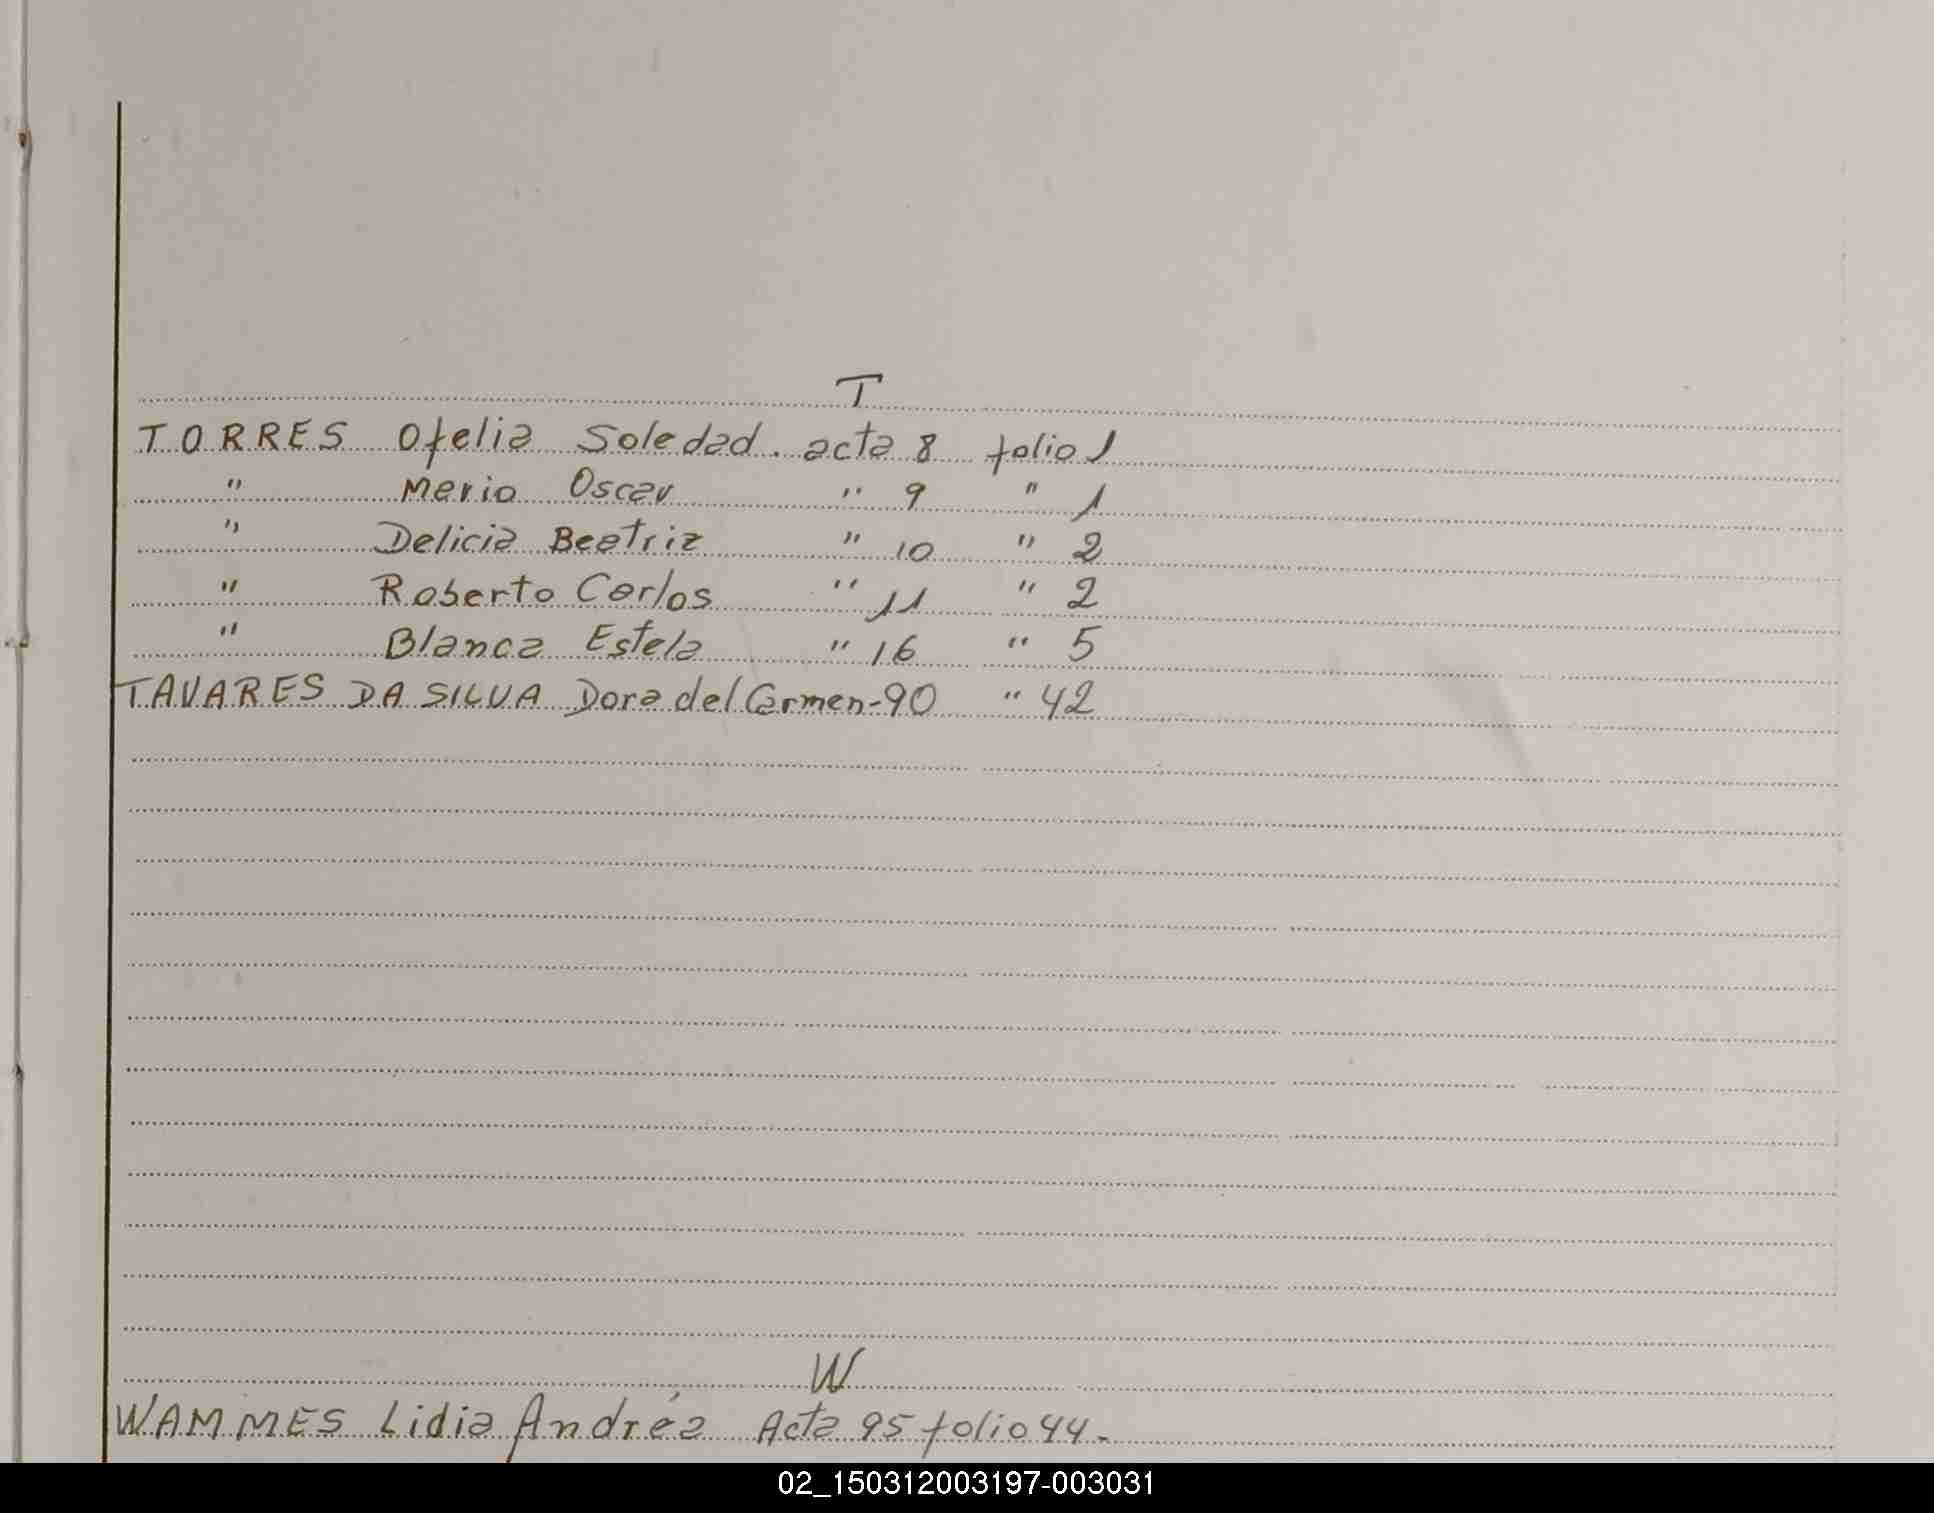 T
TORRES Ofelia Soledad. acta 8 folio 1
" Mario Oscar " 9 " 1
" Delicia Beatriz " 10 " 2
" Roberto Carlos " 11 " 2
" Blanca Estela " 16 " 5
TAVARES DA SILVA Dora del Carmen-90 " 42
W
WAMMES Lidia Andréa Acta 95 folio 44.-
02_150312003197-003031